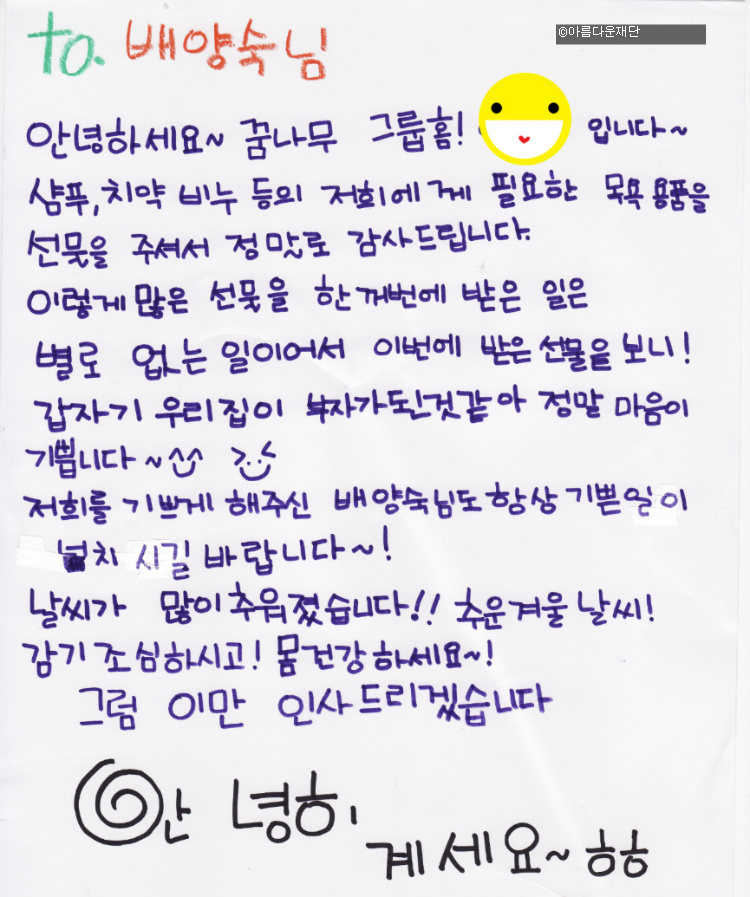 to. 배양숙님
©아름다운재단
안녕하세요~ 꿈나무 그룹홈! 입니다~
샴푸, 치약 비누 등의 저희에게 필요한 목욕 용품을
선물을 주셔서 정말로 감사드립니다.
이렇게 많은 선물을 한꺼번에 받은 일은
별로 없는 일이어서 이번에 받은 선물을 보니!
갑자기 우리집이 부자가된것같아 정말 마음이
기쁩니다~^^
저희를 기쁘게 해주신 배양숙님도 항상 기쁜일이
넘치시길 바랍니다~!
날씨가 많이 추워졌습니다!! 추운겨울 날씨!
감기 조심하시고! 몸건강하세요~!
그럼 이만 인사드리겠습니다
안녕히
계세요~ㅎㅎ